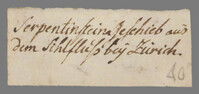 Serpentinstein Geschieb aus
dem Sihlfluß bey Zürich.
40